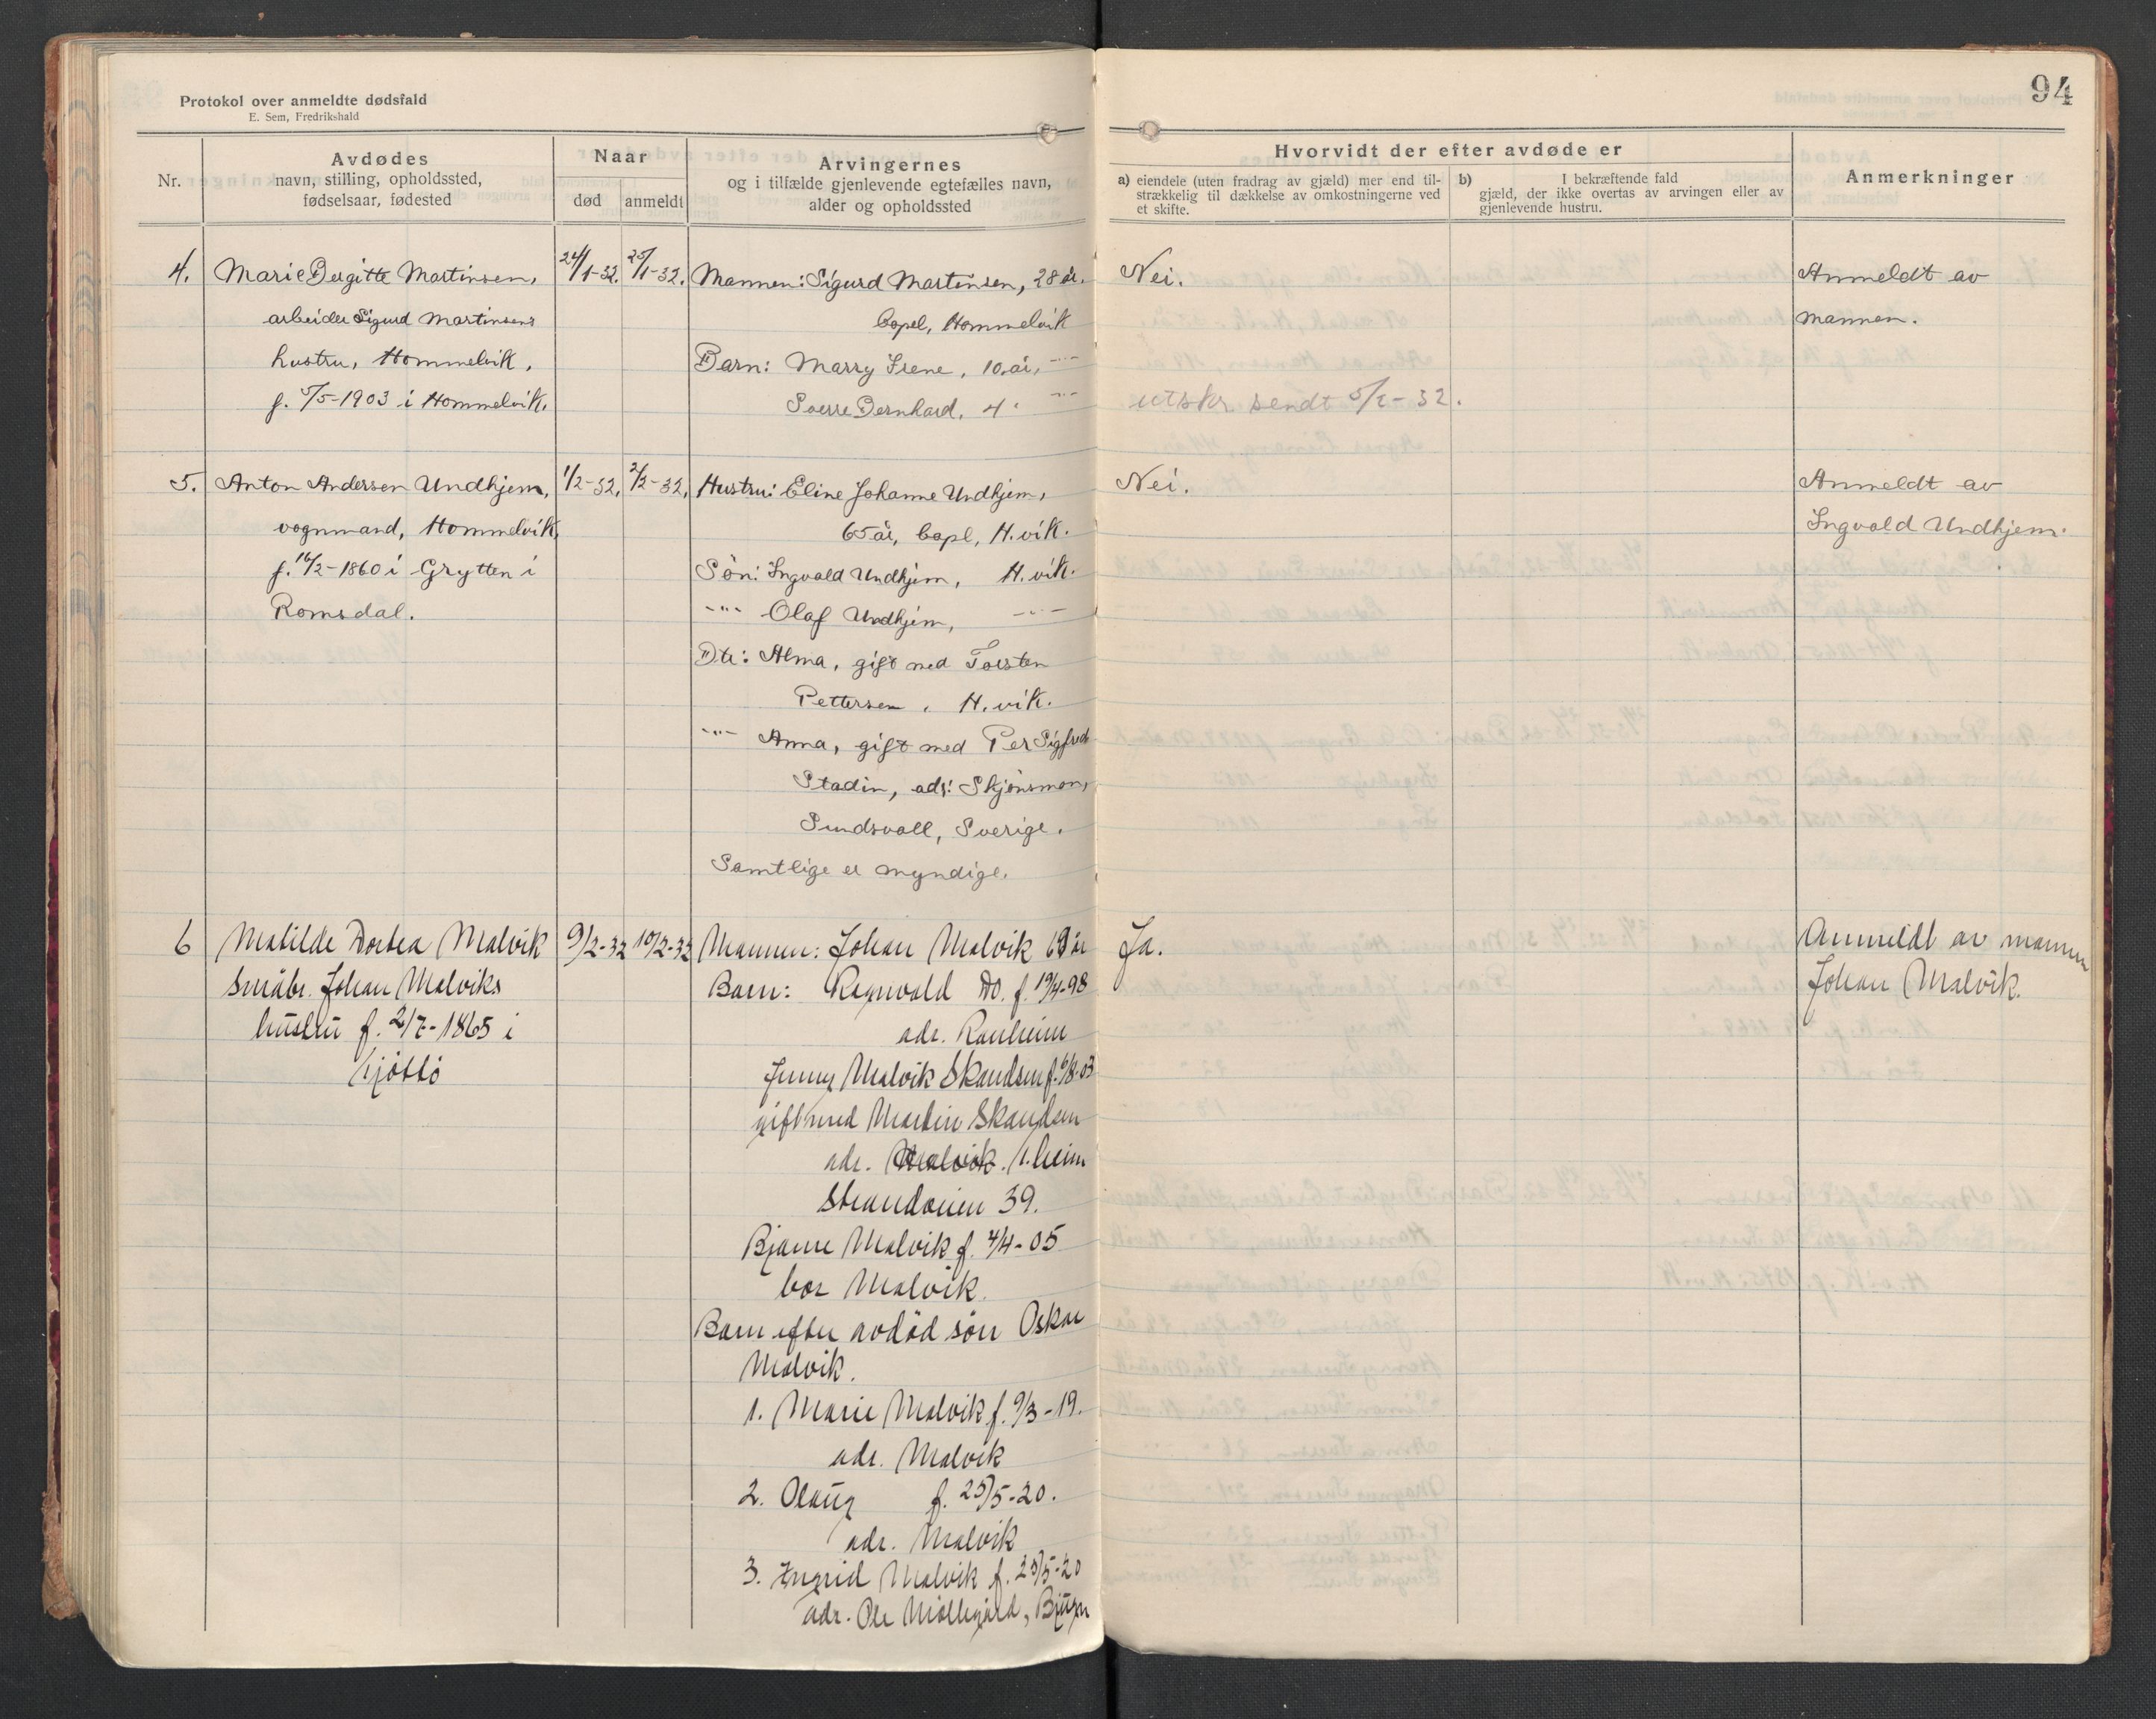 Protokol over anmeldte dødsfald
E. Sem, Fredrikshald
94
Nr.
Avdødes
navn, stilling, opholdssted,
fødselsaar, fødested
Naar
død
anmeldt
Arvingernes
og i tilfælde gjenlevende egtefælles navn,
alder og opholdssted
Hvorvidt der efter avdøde er
a) eiendele (uten fradrag av gjæld) mer end til-
strækkelig til dækkelse av omkostningerne ved
et skifte.
b) I bekræftende fald
gjæld, der ikke overtas av arvingen eller av
gjenlevende hustru.
Anmerkninger
4. Marie Bergitte Martinsen,
arbeider Sigurd Martinsens
hustru, Hommelvik,
f. 5/5-1903 i Hommelvik.
24/1-32. 25/1-32.
Mannen: Sigurd Martinsen, 28 år.
Copel, Hommelvik
Barn: Marry Irene, 10 år, -"-
Sverre Bernhard, 4 " -"-
Nei.
utskr. sendt 5/2-32.
Anmeldt av
mannen.
5. Anton Andersen Undhjem,
vognmand, Hommelvik,
f. 16/2-1860 i Grytten i
Romsdal.
1/2-32. 2/2-32.
Hustru: Eline Johanne Undhjem,
65 år, Copl, H.vik.
Søn: Ingvald Undhjem, H.vik.
-"- Olaf Undhjem, -"-
Dtr: Alma, gift med Torsten
Pettersen, H.vik.
-"- Anna, gift med Per Sigfred
Stadin, adr: Skjønsmon,
Sundsvall, Sverige.
Samtlige er myndige.
Nei.
Anmeldt av
Ingvald Undhjem.
6 Matilde Dortea Malvik
Småbr. Johan Malviks
hustru f. 2/7-1865 i
Tjøttö
9/2-32 10/2-32
Mannen: Johan Malvik 69 år
Barn: Ragnvald Do. f. 19/4-98
adr. Ranheim
Jenny Malvik Skandsen f. 6/8-03
gift med Martin Skandsen
adr. Malvik. Tr.heim
Strandveien 39.
Bjarne Malvik f. 4/4-05
bor Malvik.
Barn efter avdød søn Oskar
Malvik.
1. Marie Malvik f. 9/3-19.
adr. Malvik
2. Olaug f. 25/5-20.
adr. Malvik
3. Ingrid Malvik f. 25/5-20
adr. Ole Møllegård, Bjugn
Ja.
Anmeldt av mannen
Johan Malvik.